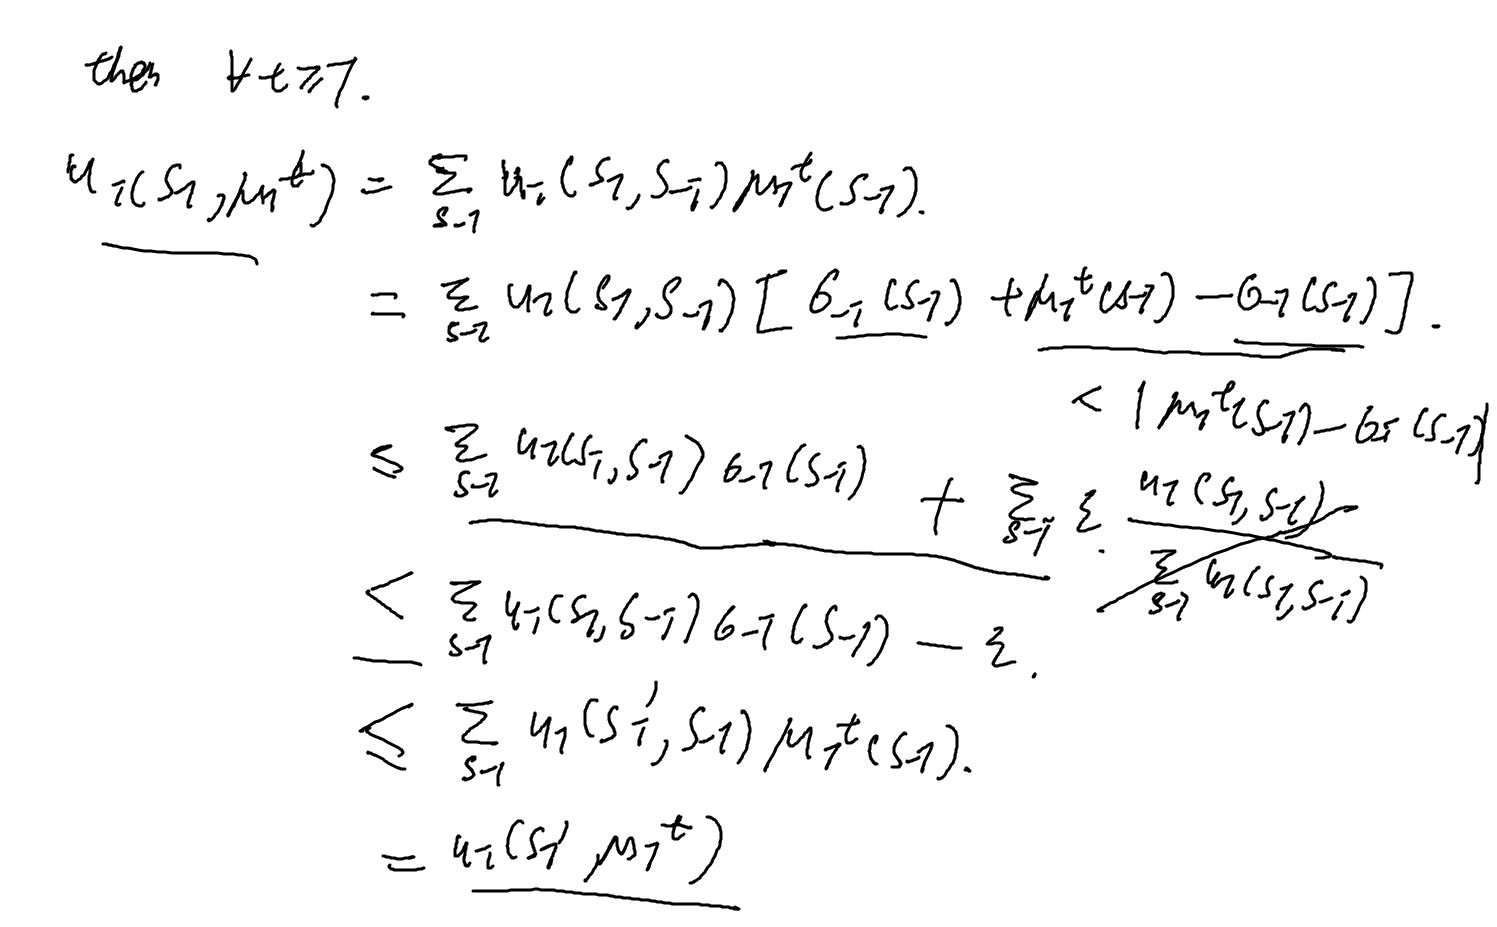 then ∀t≥T.
u_i(s_i, μ_i^t) = Σ_{s_{-i}} u_i(s_i, s_{-i}) μ_i^t(s_{-i}).
= Σ_{s_{-i}} u_i(s_i, s_{-i}) [σ_{-i}(s_{-i}) + μ_i^t(s_{-i}) − σ_{-i}(s_{-i})].
< |μ_i^t(s_{-i}) − σ_i(s_{-i})|
≤ Σ_{s_{-i}} u_i(s_i, s_{-i}) σ_{-i}(s_{-i}) + Σ_{s_{-i}} ε. u_i(s_i, s_{-i}) / Σ_{s_{-i}} u_i(s_i, s_{-i})
< Σ_{s_{-i}} u_i(s_i, s_{-i}) σ_{-i}(s_{-i}) − ε.
≤ Σ_{s_{-i}} u_i(s_i', s_{-i}) μ_i^t(s_{-i}).
= u_i(s_i', μ_i^t)